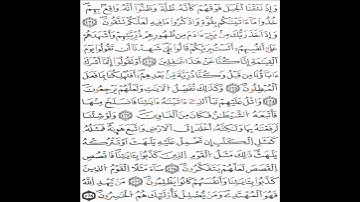 وَإِذْ نَتَقْنَا الْجَبَلَ فَوْقَهُمْ كَأَنَّهُ ظُلَّةٌ وَظَنُّوا أَنَّهُ وَاقِعٌ بِهِمْ
خُذُوا مَا ءَاتَيْنَٰكُم بِقُوَّةٍ وَاذْكُرُوا مَا فِيهِ لَعَلَّكُمْ تَتَّقُونَ ١٧١
وَإِذْ أَخَذَ رَبُّكَ مِن بَنِي ءَادَمَ مِن ظُهُورِهِمْ ذُرِّيَّتَهُمْ وَأَشْهَدَهُمْ
عَلَىٰ أَنفُسِهِمْ أَلَسْتُ بِرَبِّكُمْ قَالُوا بَلَىٰ شَهِدْنَا أَن تَقُولُوا يَوْمَ
الْقِيَٰمَةِ إِنَّا كُنَّا عَنْ هَٰذَا غَٰفِلِينَ ١٧٢ أَوْ تَقُولُوا إِنَّمَا أَشْرَكَ
ءَابَاؤُنَا مِن قَبْلُ وَكُنَّا ذُرِّيَّةً مِّن بَعْدِهِمْ أَفَتُهْلِكُنَا بِمَا فَعَلَ
الْمُبْطِلُونَ ١٧٣ وَكَذَٰلِكَ نُفَصِّلُ الْءَايَٰتِ وَلَعَلَّهُمْ يَرْجِعُونَ ١٧٤
وَاتْلُ عَلَيْهِمْ نَبَأَ الَّذِي ءَاتَيْنَٰهُ ءَايَٰتِنَا فَانسَلَخَ مِنْهَا
فَأَتْبَعَهُ الشَّيْطَٰنُ فَكَانَ مِنَ الْغَاوِينَ ١٧٥ وَلَوْ شِئْنَا
لَرَفَعْنَٰهُ بِهَا وَلَٰكِنَّهُ أَخْلَدَ إِلَى الْأَرْضِ وَاتَّبَعَ هَوَىٰهُ فَمَثَلُهُ
كَمَثَلِ الْكَلْبِ إِن تَحْمِلْ عَلَيْهِ يَلْهَثْ أَوْ تَتْرُكْهُ
يَلْهَث ذَّٰلِكَ مَثَلُ الْقَوْمِ الَّذِينَ كَذَّبُوا بِـَٔايَٰتِنَا فَاقْصُصِ
الْقَصَصَ لَعَلَّهُمْ يَتَفَكَّرُونَ ١٧٦ سَاءَ مَثَلًا الْقَوْمُ الَّذِينَ
كَذَّبُوا بِـَٔايَٰتِنَا وَأَنفُسَهُمْ كَانُوا يَظْلِمُونَ ١٧٧ مَن يَهْدِ اللَّهُ
فَهُوَ الْمُهْتَدِي وَمَن يُضْلِلْ فَأُولَٰئِكَ هُمُ الْخَٰسِرُونَ ١٧٨